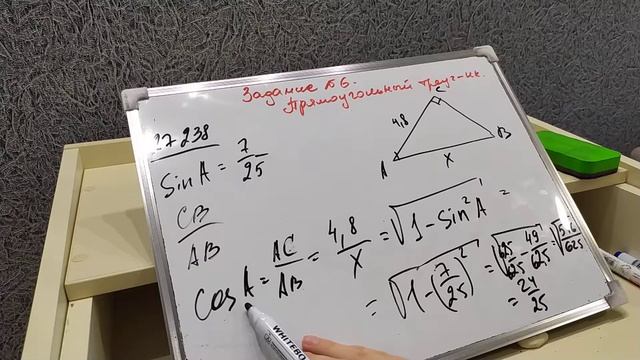 Задание №6.
Прямоугольный треуг-ик.
27 238
sin A = 7/25
CB/AB
C
4,8
A
B
x
cos A = AC/AB = 4,8/x = √(1 - sin²A) =
= √(1 - (7/25)²) = √(625/625 - 49/625) = √(576/625)
= 24/25
WHITEBO